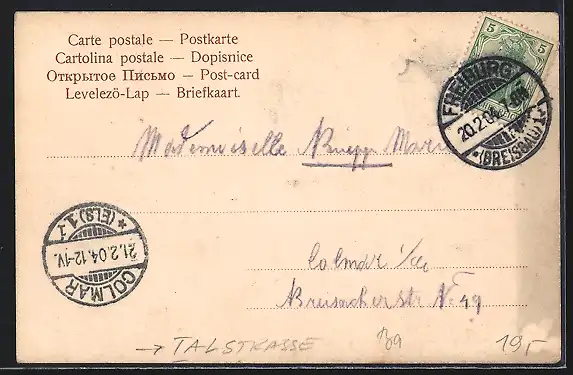 Carte postale — Postkarte
Cartolina postale — Dopisnice
Открытое Письмо — Post-card
Levelezö-Lap — Briefkaart.
5 5
FREIBURG
20.2.04
*(BREISGAU)1*
Mademoiselle Marie
Colmar i/Els
Breisacherstr No 49
COLMAR
21.2.04.12-1V.
*(ELS)1.*
→ TALSTRASSE
19,-